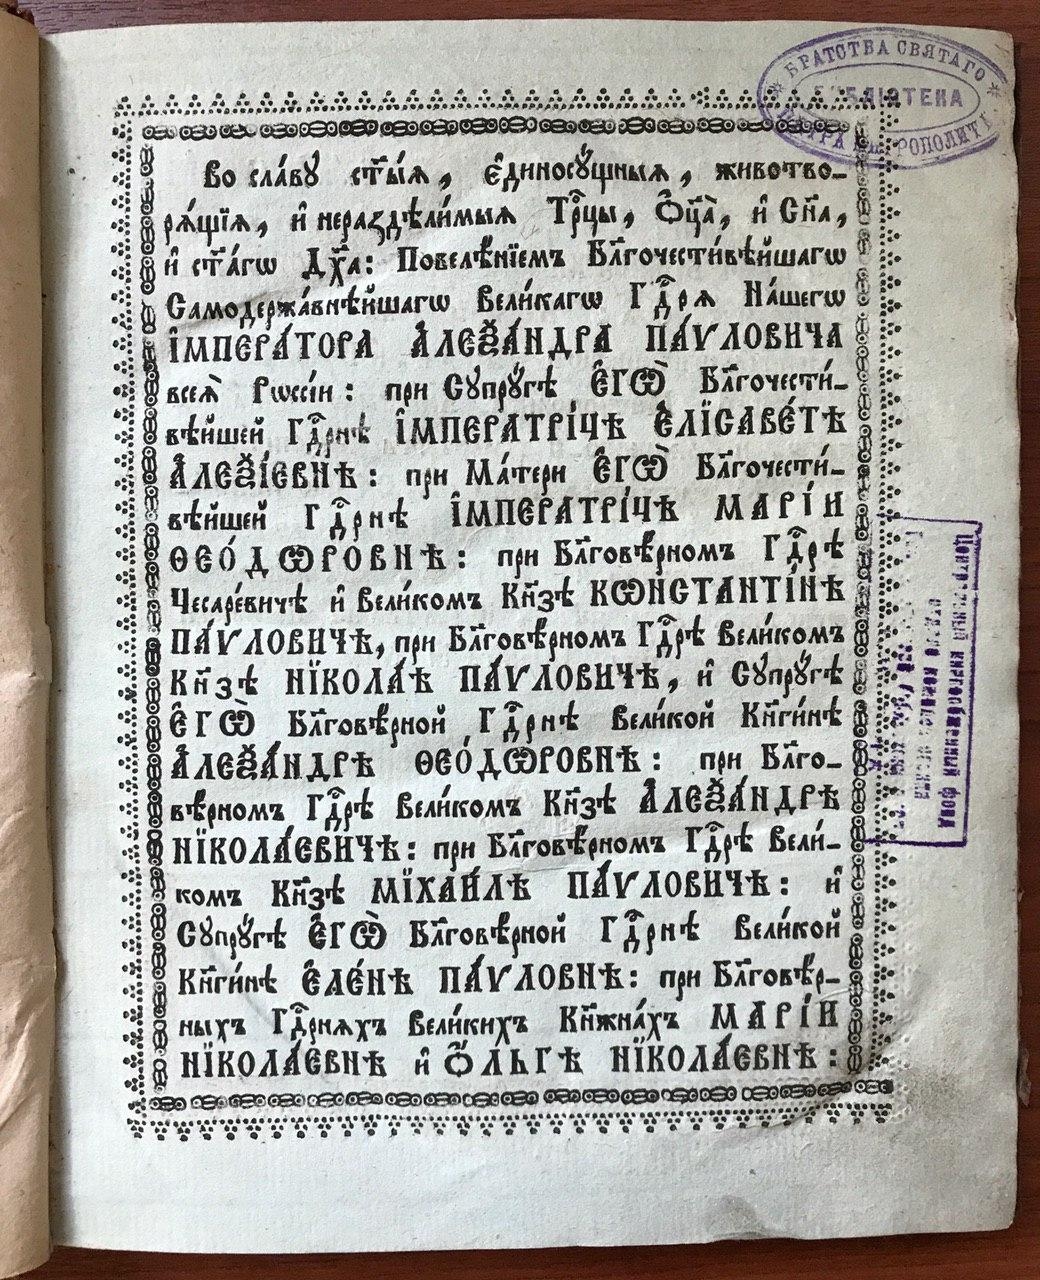 БРАТСТВА СВЯТАГО
БИБЛІОТЕКА
ПЕТРА МИТРОПОЛИТА
Во сла́вꙋ ст҃ы́ѧ, є҆диносꙋ́щныѧ, животво-
рѧ́щїѧ, и҆ нераздѣли́мыѧ Трⷪ҇цы, Ѻ҆ц҃а̀, и҆ Сн҃а,
и҆ ст҃а́гѡ Дх҃а: Повелѣ́нїемъ Бл҃гочести́вѣйшагѡ
Самодержа́внѣйшагѡ Вели́кагѡ Гдⷭ҇рѧ На́шегѡ
І҆МПЕРА́ТОРА А҆ЛЕѮА́НДРА ПА́ѴЛОВИЧА
всеѧ̀ Рѡссі́и: при Сꙋпрꙋ́гѣ Є҆ГѠ̀ Бл҃гочести́-
вѣйшей Гдⷭ҇рнѣ І҆МПЕРАТРІ́ЦѢ Є҆ЛІСАВЕ́ТѢ
А҆ЛЕѮІ́ЕВНѢ: при Ма́тери Є҆ГѠ̀ Бл҃гочести́-
вѣйшей Гдⷭ҇рнѣ І҆МПЕРАТРІ́ЦѢ МАРІ́И
ѲЕО́ДѠРОВНѢ: при Бл҃говѣ́рномъ Гдⷭ҇рѣ
Цесаре́вичѣ и҆ Вели́комъ Кн҃зѣ КѠНСТАНТІ́НѢ
ПА́ѴЛОВИЧѢ, при Бл҃говѣ́рномъ Гдⷭ҇рѣ Вели́комъ
Кн҃зѣ НЇКОЛА́Ѣ ПА́ѴЛОВИЧѢ, и҆ Сꙋпрꙋ́гѣ
Є҆ГѠ̀ Бл҃говѣ́рной Гдⷭ҇рнѣ Вели́кой Кн҃ги́нѣ
А҆ЛЕѮА́НДРѢ ѲЕО́ДѠРОВНѢ: при Бл҃го-
вѣ́рномъ Гдⷭ҇рѣ Вели́комъ Кн҃зѣ А҆ЛЕѮА́НДРѢ
НЇКОЛА́ЕВИЧѢ: при Бл҃говѣ́рномъ Гдⷭ҇рѣ Вели́-
комъ Кн҃зѣ МЇХАИ́ЛѢ ПА́ѴЛОВИЧѢ: и҆
Сꙋпрꙋ́гѣ Є҆ГѠ̀ Бл҃говѣ́рной Гдⷭ҇рнѣ Вели́кой
Кн҃ги́нѣ Є҆ЛЕ́НѢ ПА́ѴЛОВНѢ: при Бл҃говѣ́р-
ныхъ Гдⷭ҇рнѧхъ Вели́кихъ Кн҃жна́хъ МАРІ́И
НЇКОЛА́ЕВНѢ и҆ Ѻ҆́ЛЬГѢ НЇКОЛА́ЕВНѢ:
Центральный книгообменный фонд